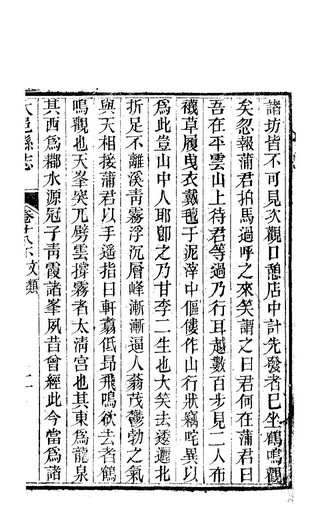 諸坊皆不可見次觀口憩店中計先發者已坐鶴鳴觀
矣忽報蒲君拍馬過呼之來笑謂之曰君何在蒲君曰
吾在平雲山上待君等過乃行耳越數百步見二人布
襪草履曳衣戴氊于泥濘中傴僂作山行狀竊咤異以
為此豈山中人耶卽之乃甘李二生也大笑去迤邐北
折足不離溪靑霧浮沉層峰漸漸逼人蓊茂鬱勃之氣
與天相接蒲君以手遥指曰軒翥低昻飛鳴欲去者鶴
鳴觀也天峯突兀劈雲撐霧者太淸宮也其東為龍泉
其西為鄰水源冠子靑霞諸峯夙昔曾經此今當為諸
大邑縣志
卷十八下文類